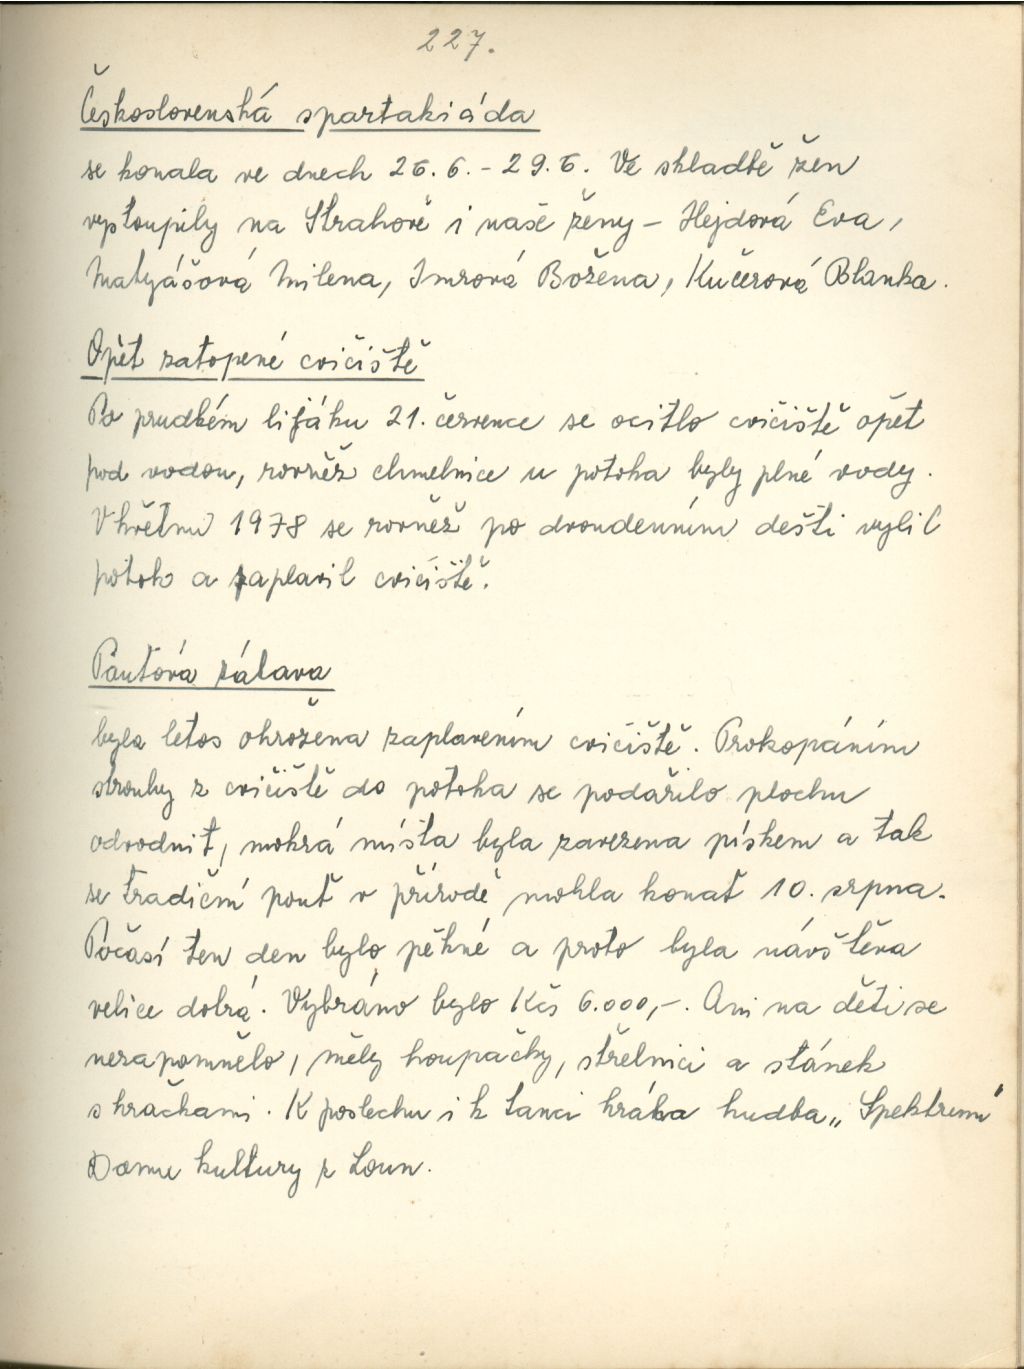 227.
Československá spartakiáda
se konala ve dnech 26.6. - 29.6. Ve skladbě žen
vystoupily na Strahově i naše ženy - Hejdová Eva,
Matyášová Milena, Imrová Božena, Kučerová Blanka.
Opět zatopené cvičiště
Po prudkém lijáku 21. července se ocitlo cvičiště opět
pod vodou, rovněž chmelnice u potoka byly plné vody.
V květnu 1978 se rovněž po dvoudenním dešti vylil
potok a zaplavil cvičiště.
Pouťová zábava
byla letos ohrožena zaplavením cvičiště. Prokopáním
strouhy z cvičiště do potoka se podařilo plochu
odvodnit, mokrá místa byla zavezena pískem a tak
se tradiční pouť v přírodě mohla konat 10. srpna.
Počasí ten den bylo pěkné a proto byla návštěva
velice dobrá. Vybráno bylo Kčs 6.000,-. Ani na děti se
nezapomnělo, měly houpačky, střelnici a stánek
s hračkami. K poslechu i k tanci hrála hudba „Spektrum"
Domu kultury z Loun.